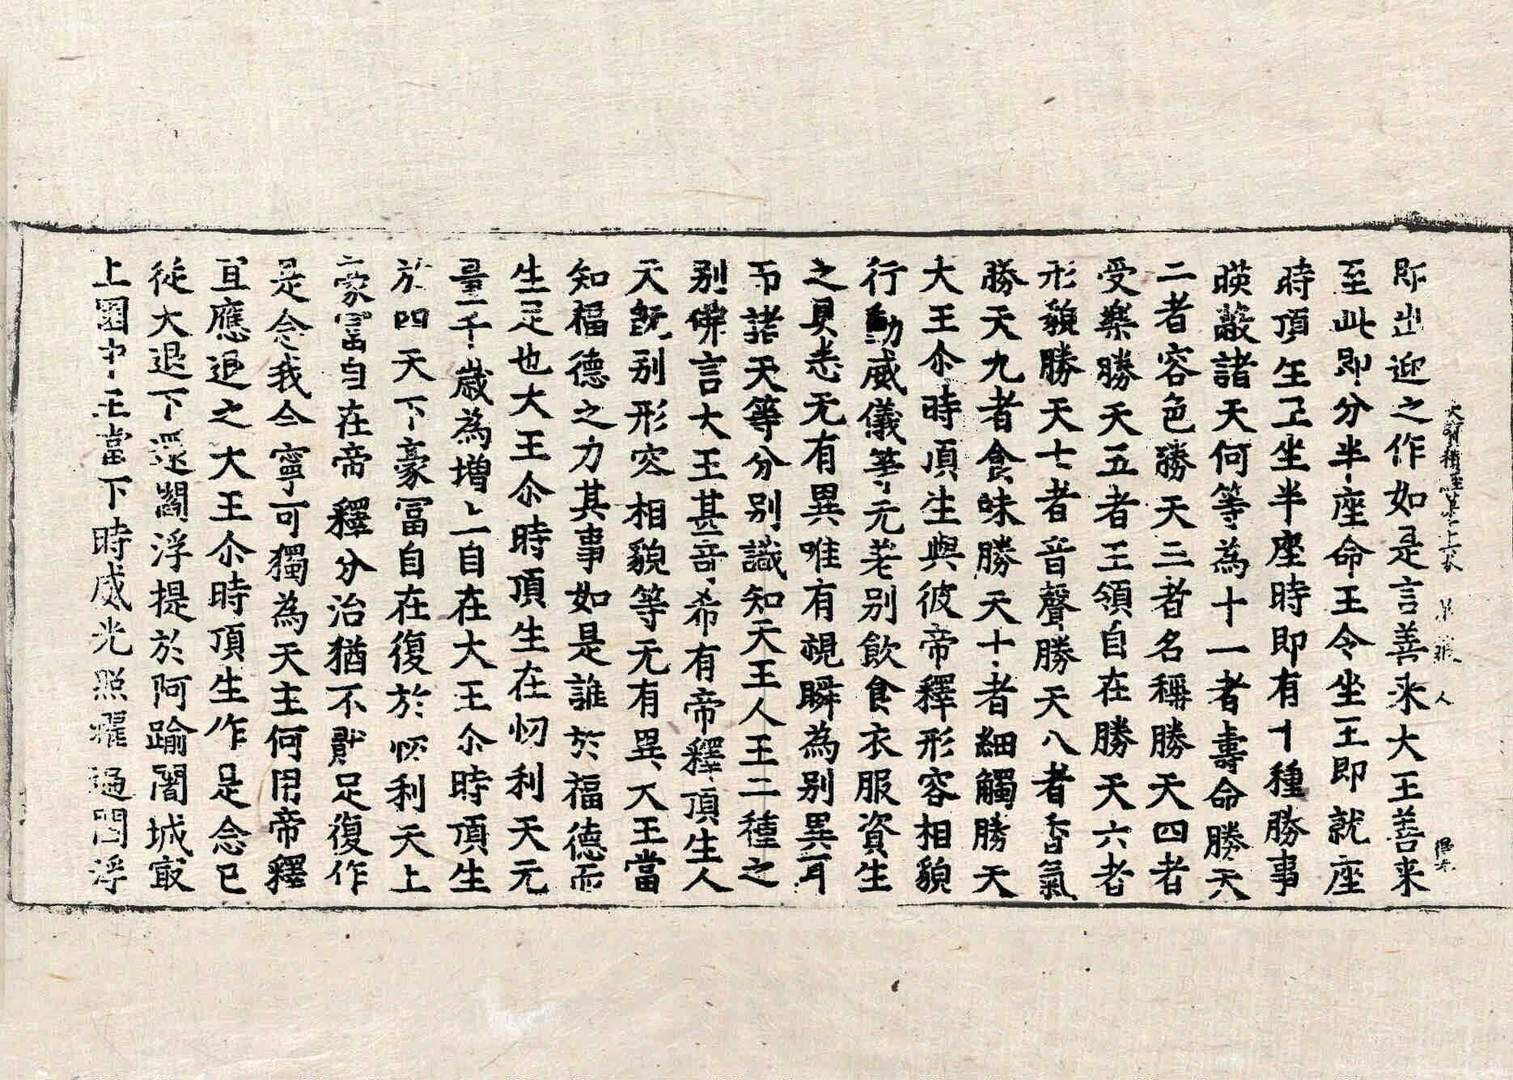 即出迎之作如是言善来大王善来
至此即分半座命王令坐王即就座
時頂生王坐半座時即有十種勝事
暎蔽諸天何等為十一者壽命勝天
二者容色勝天三者名稱勝天四者
受樂勝天五者王領自在勝天六者
形貌勝天七者音聲勝天八者香氣
勝天九者食味勝天十者細觸勝天
大王尒時頂生與彼帝釋形容相貌
行動威儀等无差别飲食衣服資生
之具悉无有異唯有視瞬為别異耳
而諸天等分别識知天王人王二種之
别佛言大王甚奇希有帝釋頂生人
天既别形容相貌等无有異大王當
知福德之力其事如是誰於福德而
生足也大王尒時頂生在忉利天无
量千歲為增上自在大王尒時頂生
於四天下豪冨自在復於忉利天上
豪冨自在帝釋分治猶不猒足復作
是念我今寧可獨為天主何用帝釋
宜應逈之大王尒時頂生作是念已
從大退下還閻浮提於阿踰闍城㝡
上園中王當下時威光照耀遍閻浮